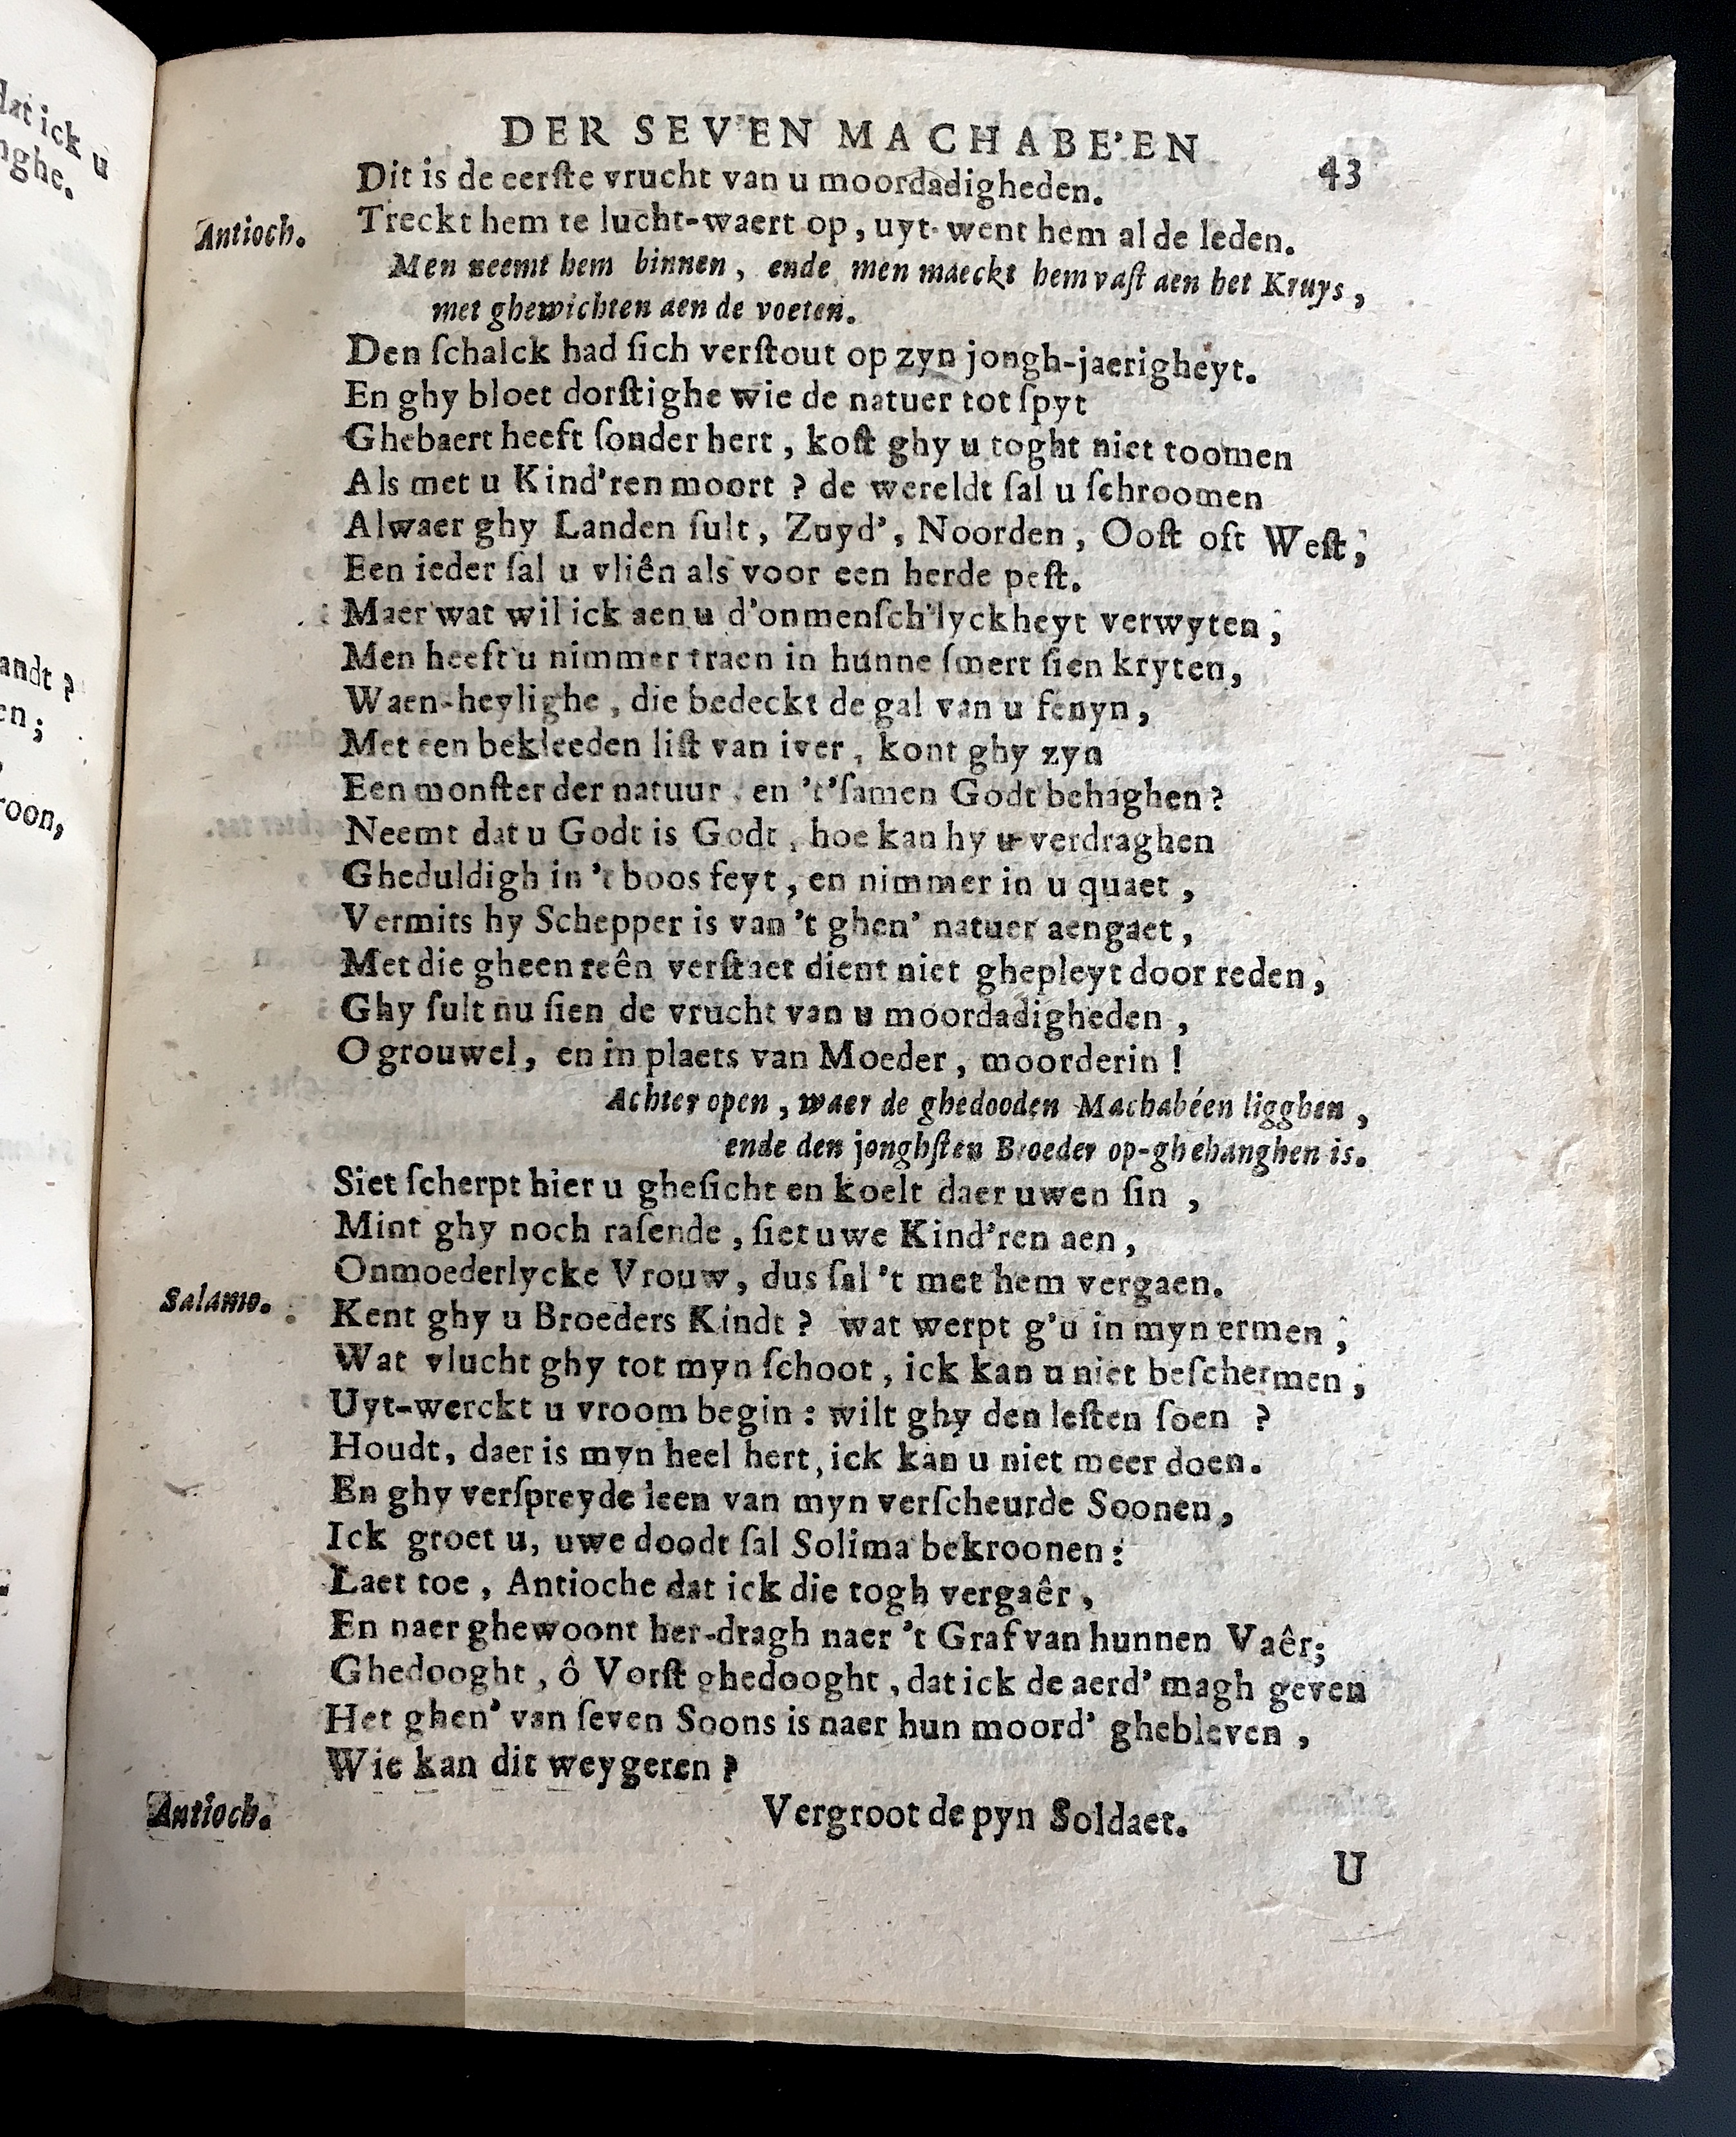 dat ick u
nghe.
andt ?
en;
roon,
DER SEVEN MACHABE'EN 43
Dit is de eerſte vrucht van u moordadigheden.
Antioch. Treckt hem te lucht-waert op, uyt-went hem al de leden.
Men neemt hem binnen, ende men maeckt hem vaſt aen het Kruys,
met ghewichten aen de voeten.
Den ſchalck had ſich verſtout op zyn jongh-jaerigheyt.
En ghy bloet dorſtighe wie de natuer tot ſpyt
Ghebaert heeft ſonder hert, koſt ghy u toght niet toomen
Als met u Kind'ren moort ? de wereldt ſal u ſchroomen
Alwaer ghy Landen ſult, Zuyd', Noorden, Ooſt oft Weſt;
Een ieder ſal u vliên als voor een herde peſt.
Maer wat wil ick aen u d'onmenſch'lyckheyt verwyten;
Men heeft u nimmer traen in hunne ſmert ſien kryten,
Waen-heylighe, die bedeckt de gal van u fenyn,
Met een bekleeden liſt van iver, kont ghy zyn
Een monſter der natuur, en 't'ſamen Godt behaghen?
Neemt dat u Godt is Godt, hoe kan hy u verdraghen
Gheduldigh in 't boos feyt, en nimmer in u quaet,
Vermits hy Schepper is van 't ghen' natuer aengaet,
Met die gheen reên verſtaet dient niet ghepleyt door reden,
Ghy ſult nu ſien de vrucht van u moordadigheden,
O grouwel, en in plaets van Moeder, moorderin !
Achter open, waer de ghedooden Machabéen ligghen,
ende den jonghſten Broeder op-ghehanghen is.
Siet ſcherpt hier u gheſicht en koelt daer uwen ſin,
Mint ghy noch raſende, ſiet uwe Kind'ren aen,
Onmoederlycke Vrouw, dus ſal 't met hem vergaen.
Salamo. Kent ghy u Broeders Kindt ? wat werpt g'u in myn ermen;
Wat vlucht ghy tot myn ſchoot, ick kan u niet beſchermen;
Uyt-werckt u vroom begin : wilt ghy den leſten ſoen ?
Houdt, daer is myn heel hert, ick kan u niet meer doen.
En ghy verſpreyde leen van myn verſcheurde Soonen,
Ick groet u, uwe doodt ſal Solima bekroonen:
Laet toe, Antioche dat ick die togh vergaêr,
En naer ghewoont her-dragh naer 't Graf van hunnen Vaêr;
Ghedooght, ô Vorſt ghedooght, dat ick de aerd' magh geven
Het ghen' van ſeven Soons is naer hun moord' ghebleven,
Wie kan dit weygeren ?
Antioch. Vergroot de pyn Soldaet.
U